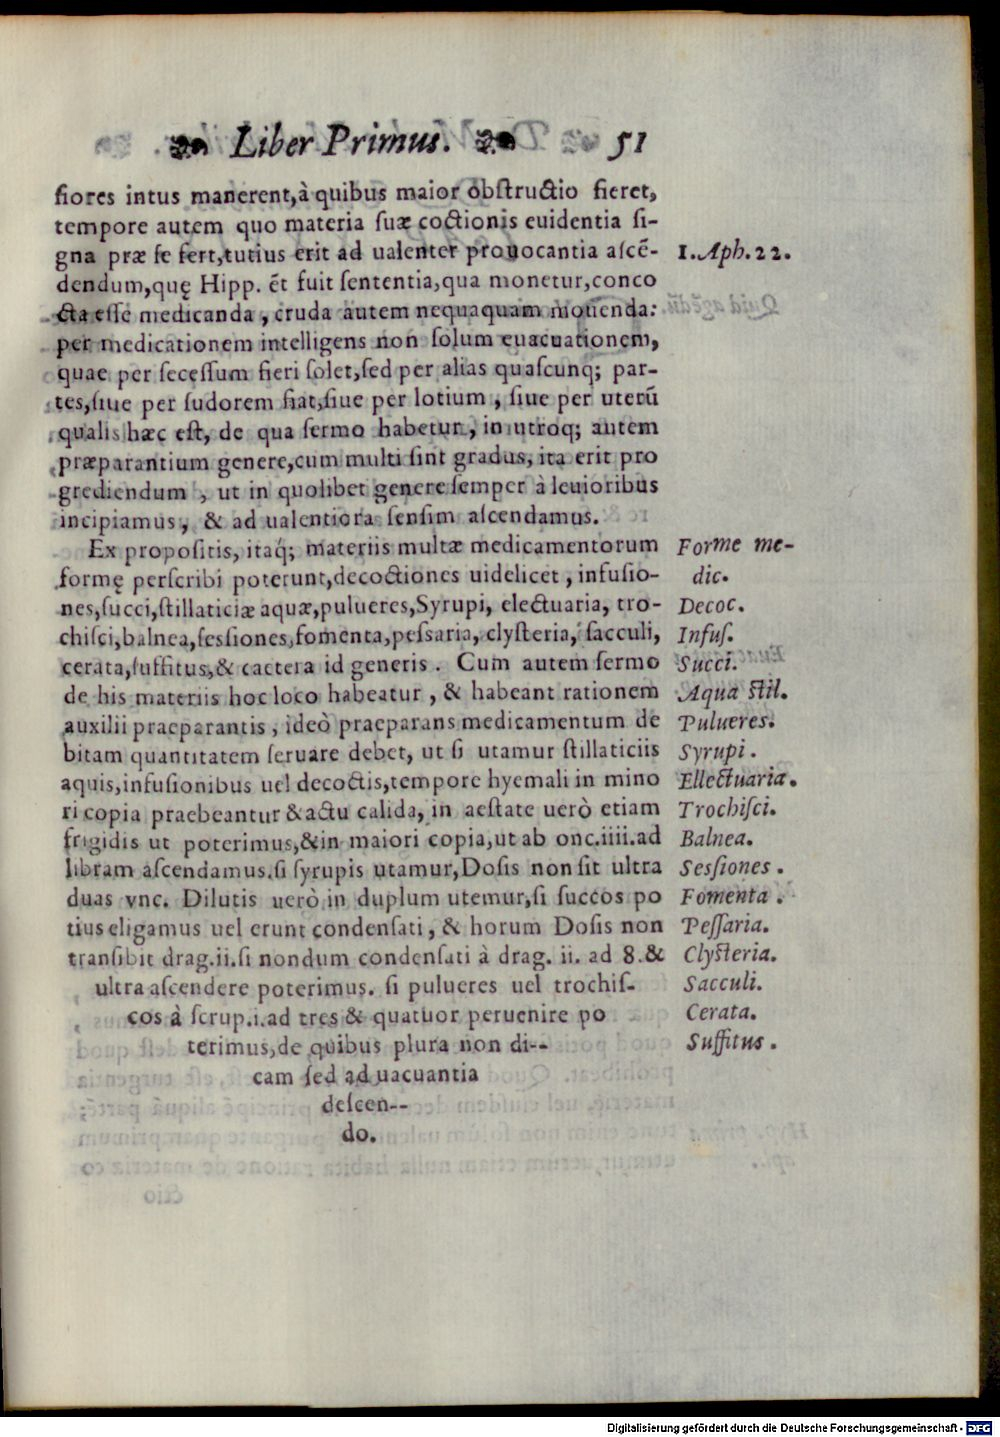 Liber Primus. 51
ſiores intus manerent, à quibus maior obſtructio fieret,
tempore autem quo materia ſuæ coctionis euidentia ſi-
gna præ ſe fert, tutius erit ad ualenter prouocantia aſcẽ-
dendum, quę Hipp. ẽt fuit ſententia, qua monetur, conco
cta eſſe medicanda, cruda autem nequaquam mouenda:
per medicationem intelligens non ſolum euacuationem,
quae per ſeceſſum fieri ſolet, ſed per alias quaſcunq; par-
tes, ſiue per ſudorem fiat, ſiue per lotium, ſiue per uterũ
qualis hæc eſt, de qua ſermo habetur, in utroq; autem
præparantium genere, cum multi ſint gradus, ita erit pro
grediendum, ut in quolibet genere ſemper à leuioribus
incipiamus, & ad ualentiora ſenſim aſcendamus.
Ex propoſitis, itaq; materiis multæ medicamentorum
formę perſcribi poterunt, decoctiones uidelicet, infuſio-
nes, ſucci, ſtillaticiæ aquæ, pulueres, Syrupi, electuaria, tro-
chiſci, balnea, ſeſsiones, fomenta, peſsaria, clyſteria, ſacculi,
cerata, ſuffitus, & caetera id generis. Cum autem ſermo
de his materiis hoc loco habeatur, & habeant rationem
auxilii praeparantis, ideò praeparans medicamentum de
bitam quantitatem ſeruare debet, ut ſi utamur ſtillaticiis
aquis, infuſionibus uel decoctis, tempore hyemali in mino
ri copia praebeantur & actu calida, in aeſtate uerò etiam
frigidis ut poterimus, & in maiori copia, ut ab onc. iiii. ad
libram aſcendamus. ſi ſyrupis utamur, Doſis non ſit ultra
duas vnc. Dilutis uerò in duplum utemur, ſi ſuccos po
tius eligamus uel erunt condenſati, & horum Doſis non
tranſibit drag. ii. ſi nondum condenſati à drag. ii. ad 8. &
ultra aſcendere poterimus. ſi pulueres uel trochiſ-
cos à ſcrup. i. ad tres & quatuor peruenire po
terimus, de quibus plura non di--
cam ſed ad uacuantia
deſcen--
do.
1. Aph. 22.
Forme me-
dic.
Decoc.
Infuſ.
Succi.
Aqua ſtil.
Pulueres.
Syrupi.
Ellectuaria.
Trochiſci.
Balnea.
Seſſiones.
Fomenta.
Peſſaria.
Clyſteria.
Sacculi.
Cerata.
Suffitus.
Digitalisierung gefördert durch die Deutsche Forschungsgemeinschaft - DFG